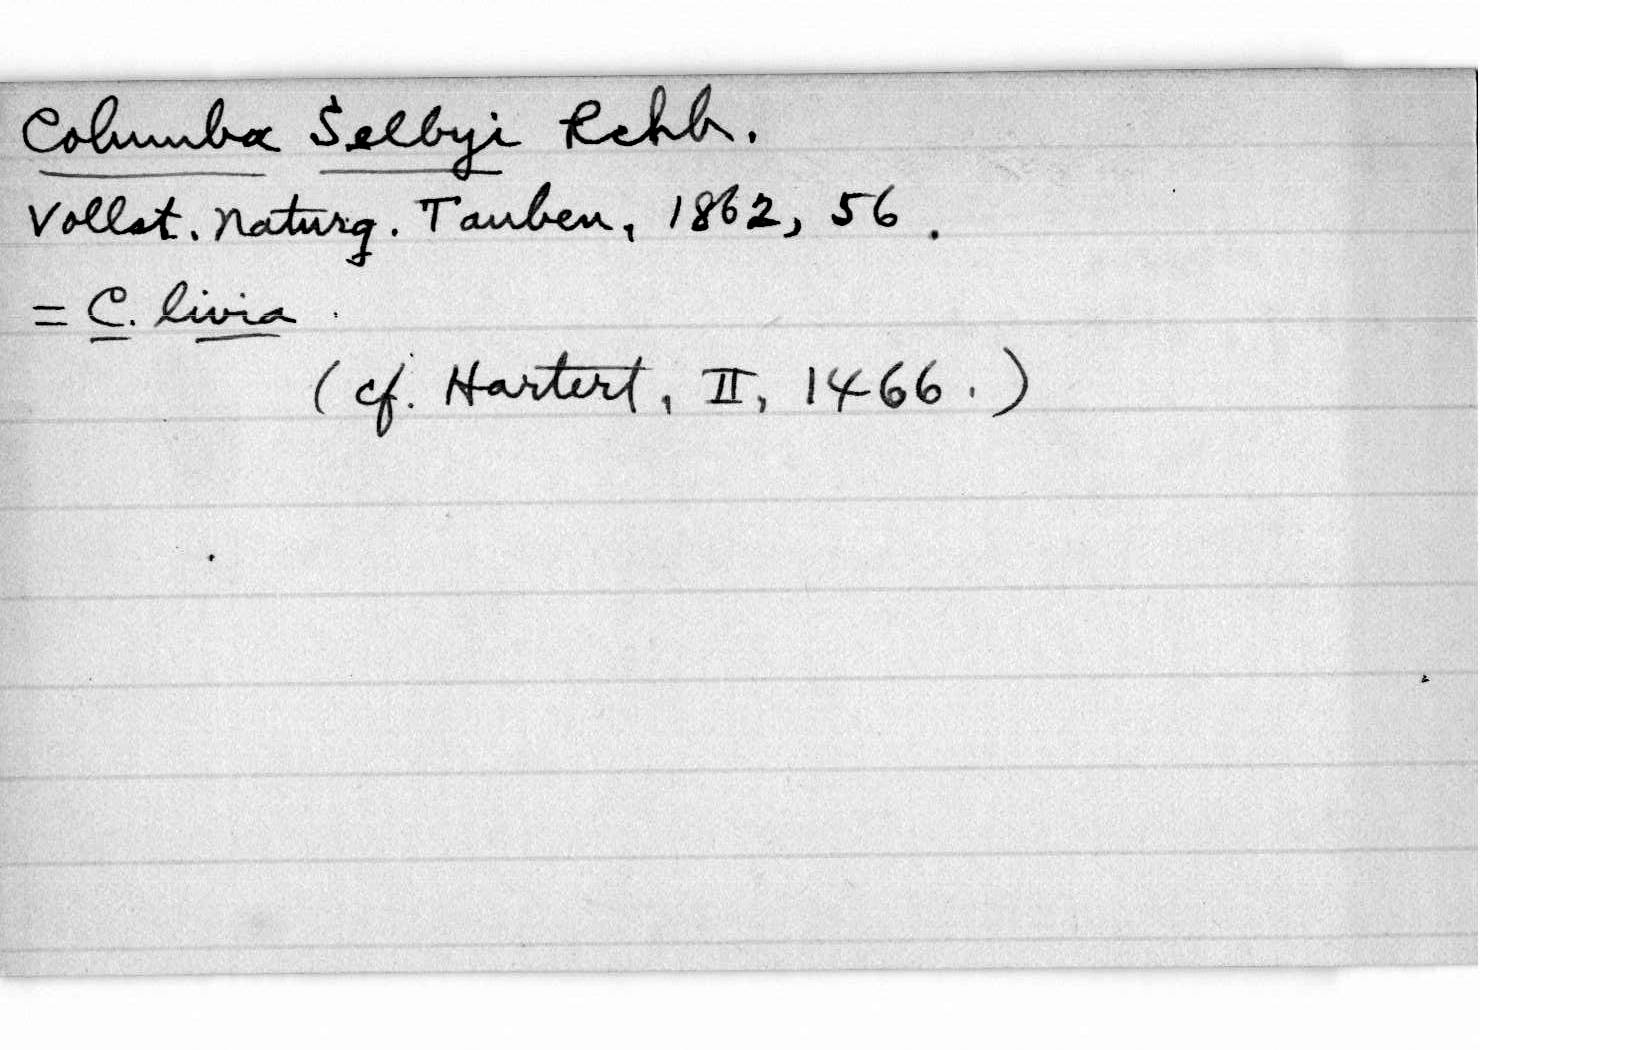 Columba Selbyi Rchb.
Vollst. Naturg. Tauben, 1862, 56.
= C. livia.
(cf. Hartert, II, 1466.)